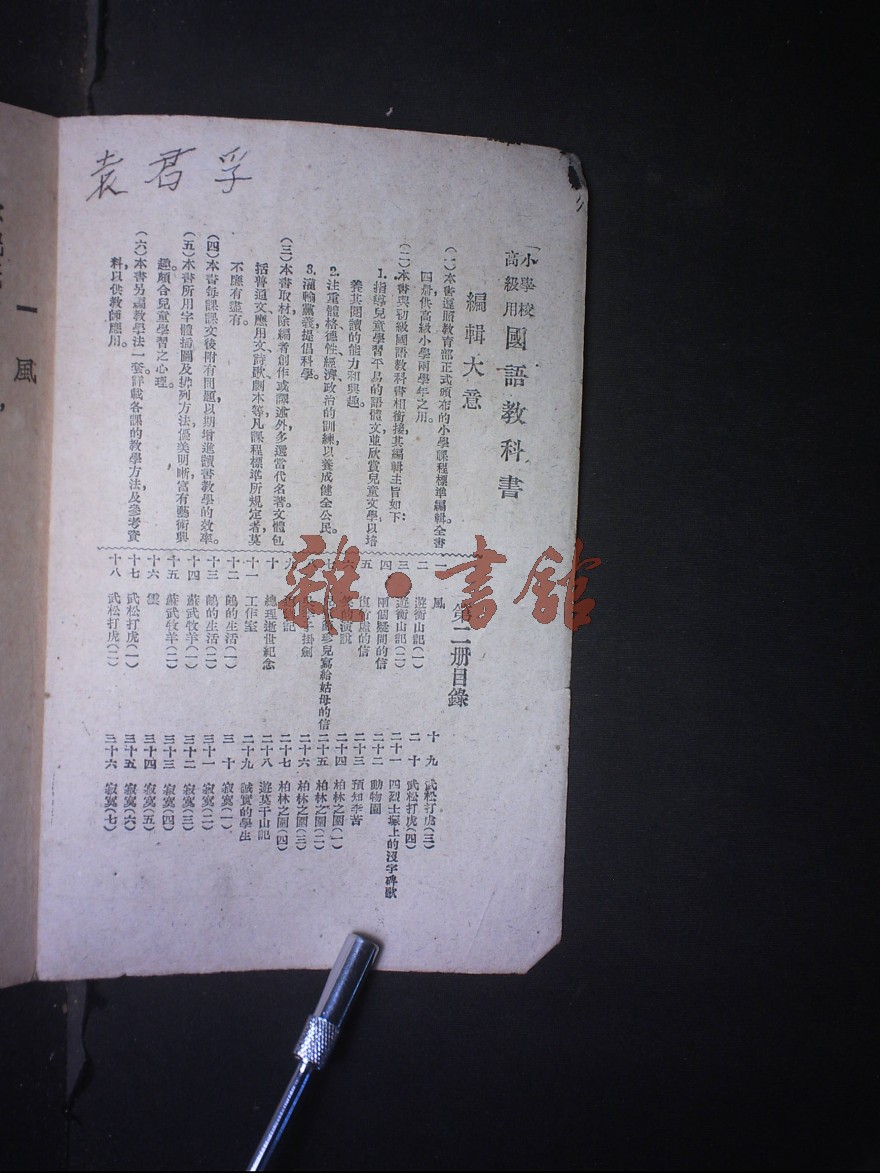 小學校
高級用
國語教科書
編輯大意
(一)本書遵照教育部正式頒布的小學課程標準編輯全書
四冊供高級小學兩學年之用。
(二)本書與初級國語教科書相銜接其編輯主旨如下:
1.指導兒童學習平易的語體文並欣賞兒童文學以培
養其閱讀的能力和興趣。
2.注重體格、德性、經濟、政治的訓練以養成健全公民。
3.灌輸黨義提倡科學。
(三)本書取材除編者創作或譯述外多選當代名著文體包
括普通文、應用文、詩歌、劇本等凡課程標準所規定者,莫
不應有盡有。
(四)本書每課課文後附有問題以期增進讀書教學的效率。
(五)本書所用字體、插圖及排列方法,優美明晰富有藝術興
趣頗合兒童學習之心理。
(六)本書另編教學法一套詳載各課的教學方法,及參考資
料以供教師應用。
第二册目錄
一 風
二 遊衡山記(一)
三 遊衡山記(二)
四 兩個疑問的信
五 信
演說
珍兒寫給姑母的信
掛劍
記
十 總理逝世紀念
十一 工作室
十二 鷸的生活(一)
十三 鷸的生活(二)
十四 蘇武牧羊(一)
十五 蘇武牧羊(二)
十六 雲
十七 武松打虎(一)
十八 武松打虎(二)
十九 武松打虎(三)
二十 武松打虎(四)
二十一 四烈士塚上的沒字碑歌
二十二 動物園
二十三 預知李苦
二十四 柏林之圍(一)
二十五 柏林之圍(二)
二十六 柏林之圍(三)
二十七 柏林之圍(四)
二十八 遊莫干山記
二十九 誠實的學生
三十 寂寞(一)
三十一 寂寞(二)
三十二 寂寞(三)
三十三 寂寞(四)
三十四 寂寞(五)
三十五 寂寞(六)
三十六 寂寞(七)
袁君孚
一 風
雜·書館